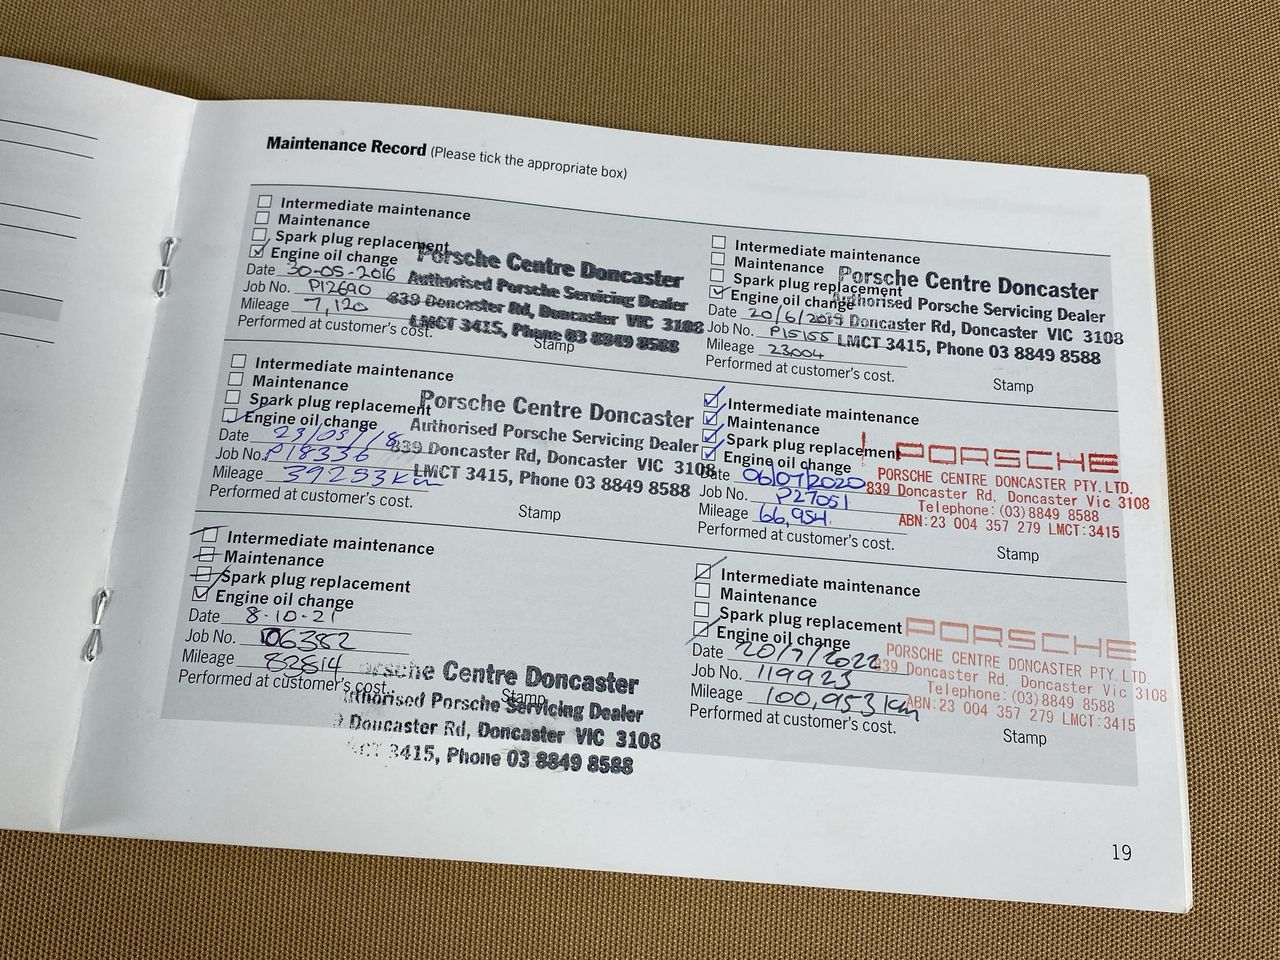 Maintenance Record (Please tick the appropriate box)
Intermediate maintenance
Maintenance
Spark plug replacement
Engine oil change
Date 30-05-2016
Job No. P12690
Mileage 7,120
Performed at customer's cost.
Stamp
Porsche Centre Doncaster
Authorised Porsche Servicing Dealer
839 Doncaster Rd, Doncaster VIC 3108
LMCT 3415, Phone 03 8849 8588
Intermediate maintenance
Maintenance
Spark plug replacement
Engine oil change
Date 20/6/
Job No. P15155
Mileage 23004
Performed at customer's cost.
Stamp
Porsche Centre Doncaster
Authorised Porsche Servicing Dealer
Doncaster Rd, Doncaster VIC 3108
LMCT 3415, Phone 03 8849 8588
Intermediate maintenance
Maintenance
Spark plug replacement
Engine oil change
Date 23/05/18
Job No. P18336
Mileage 39253km
Performed at customer's cost.
Stamp
Porsche Centre Doncaster
Authorised Porsche Servicing Dealer
839 Doncaster Rd, Doncaster VIC 3108
LMCT 3415, Phone 03 8849 8588
Intermediate maintenance
Maintenance
Spark plug replacement
Engine oil change
Date 06/07/2020
Job No. P27051
Mileage 66,954
Performed at customer's cost.
Stamp
PORSCHE
PORSCHE CENTRE DONCASTER PTY. LTD.
839 Doncaster Rd, Doncaster Vic 3108
Telephone: (03) 8849 8588
ABN: 23 004 357 279 LMCT: 3415
Intermediate maintenance
Maintenance
Spark plug replacement
Engine oil change
Date 8.10.21
Job No. 06382
Mileage 82814
Performed at customer's cost.
Stamp
Porsche Centre Doncaster
Authorised Porsche Servicing Dealer
Doncaster Rd, Doncaster VIC 3108
LMCT 3415, Phone 03 8849 8588
Intermediate maintenance
Maintenance
Spark plug replacement
Engine oil change
Date 20/7/2022
Job No. 119923
Mileage 100,953 km
Performed at customer's cost.
Stamp
PORSCHE
PORSCHE CENTRE DONCASTER PTY. LTD.
839 Doncaster Rd, Doncaster Vic 3108
Telephone: (03) 8849 8588
ABN: 23 004 357 279 LMCT: 3415
19